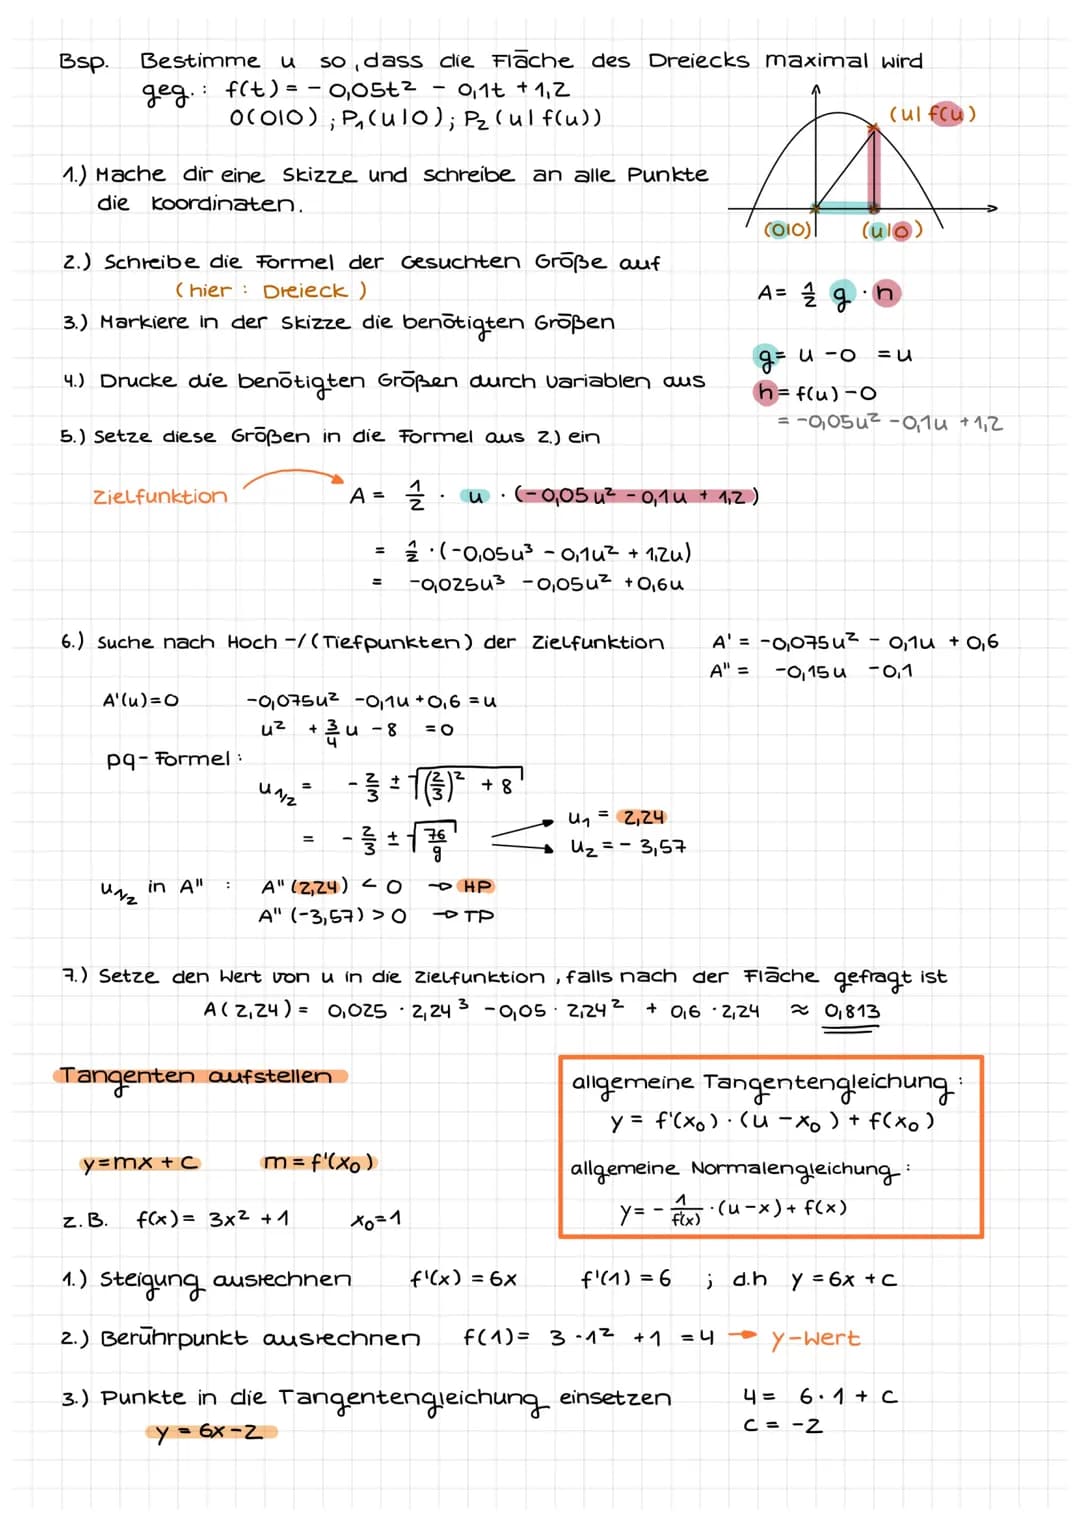 Bsp. Bestimme u so, dass die Fläche des Dreiecks maximal wird
geg.: f(t) = - 0,05t² - 0,1t + 1,2
O(0|0) ; P₁(u|0); P₂(u| f(u))
(u| f(u))
(0|0)
(u|0)
1.) Mache dir eine Skizze und schreibe an alle Punkte
die Koordinaten.
2.) Schreibe die Formel der Gesuchten Größe auf
(hier : Dreieck)
A = 1/2 g · h
3.) Markiere in der Skizze die benötigten Größen
g = u - 0 = u
4.) Drücke die benötigten Größen durch Variablen aus
h = f(u) - 0
= -0,05u² - 0,1u + 1,2
5.) Setze diese Größen in die Formel aus 2.) ein
Zielfunktion A = 1/2 · u · (-0,05u² - 0,1u + 1,2)
= 1/2 · (-0,05u³ - 0,1u² + 1,2u)
= -0,025u³ - 0,05u² + 0,6u
6.) Suche nach Hoch -/(Tiefpunkten) der Zielfunktion A' = -0,075u² - 0,1u + 0,6
A'' = -0,15u - 0,1
A'(u)=0 -0,075u² - 0,1u + 0,6 = u
u² + 3/4 u - 8 = 0
pq- Formel :
u₁/₂ = - 2/3 ± √((2/3)² + 8)
= - 2/3 ± √(76/9)
u₁ = 2,24
u₂ = - 3,57
u₁/₂ in A'' : A'' (2,24) < 0 → HP
A'' (-3,57) > 0 → TP
7.) Setze den Wert von u in die Zielfunktion, falls nach der Fläche gefragt ist
A(2,24) = 0,025 · 2,24³ - 0,05 · 2,24² + 0,6 · 2,24 ≈ 0,813
Tangenten aufstellen
allgemeine Tangentengleichung :
y = f'(x₀) · (u - x₀) + f(x₀)
allgemeine Normalengleichung :
y = - 1/f'(x) · (u - x) + f(x)
y = mx + c m = f'(x₀)
z.B. f(x) = 3x² + 1 x₀=1
1.) Steigung ausrechnen f'(x) = 6x f'(1) = 6 ; d.h y = 6x + c
2.) Berührpunkt ausrechnen f(1) = 3 · 1² + 1 = 4 → y-Wert
3.) Punkte in die Tangentengleichung einsetzen 4 = 6 · 1 + c
y = 6x - 2 c = -2